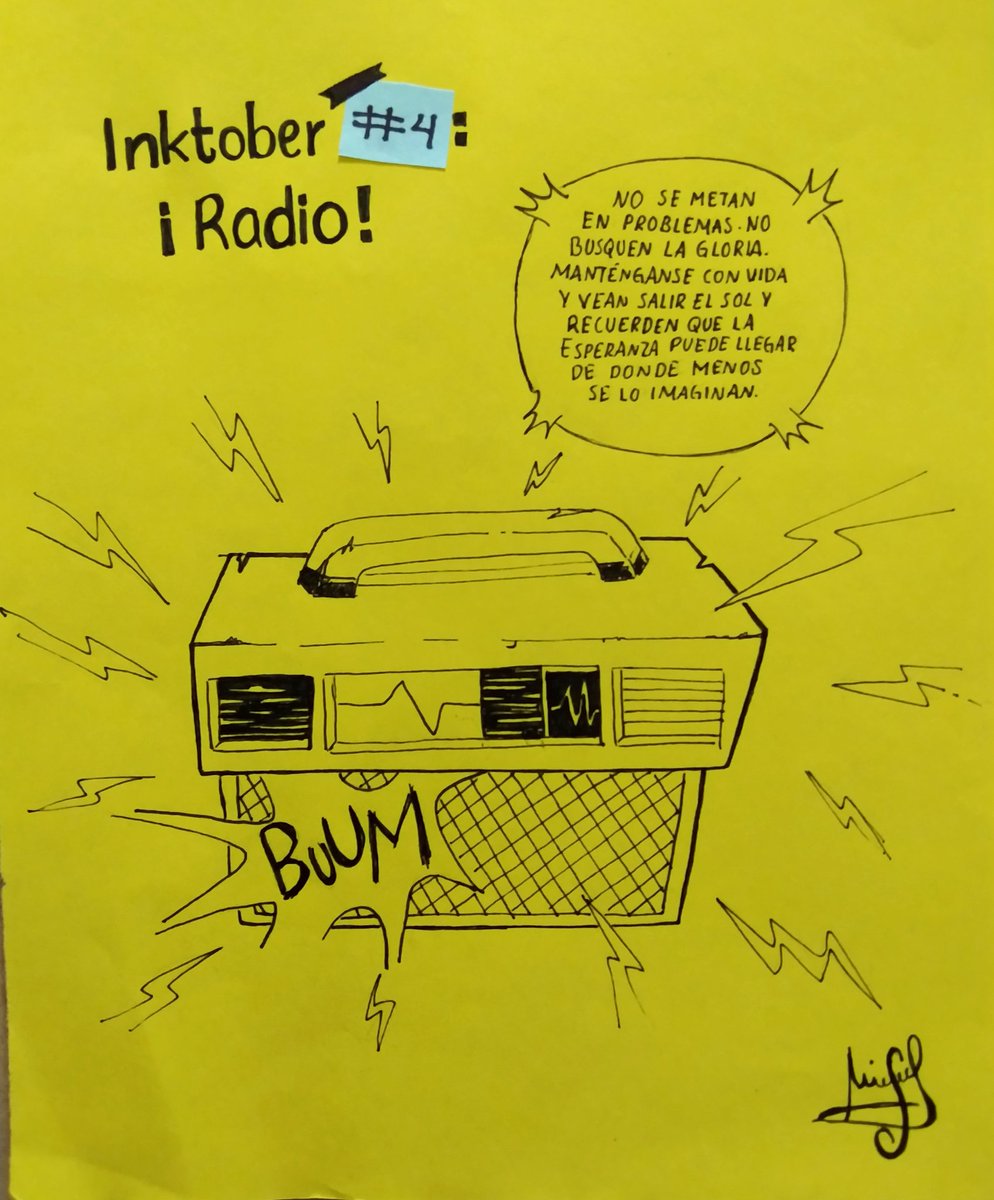 Inktober #4:
¡Radio!
NO SE METAN
EN PROBLEMAS. NO
BUSQUEN LA GLORIA.
MANTÉNGANSE CON VIDA
Y VEAN SALIR EL SOL Y
RECUERDEN QUE LA
ESPERANZA PUEDE LLEGAR
DE DONDE MENOS
SE LO IMAGINAN.
BUUM